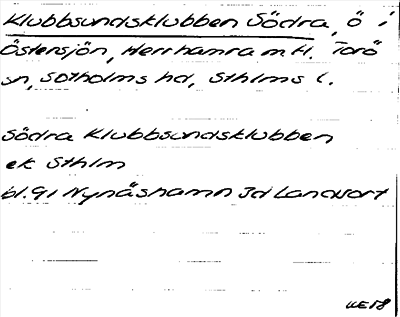 Klubbsundsklubben Södra, ö i
Östersjön, Herrhamra m.fl. Torö
sn, Sotholms hd, Sthlms l.
Södra Klubbsundsklubben
ek Sthlm
bl. 91 Nynäshamn Jd Landsort
WE58